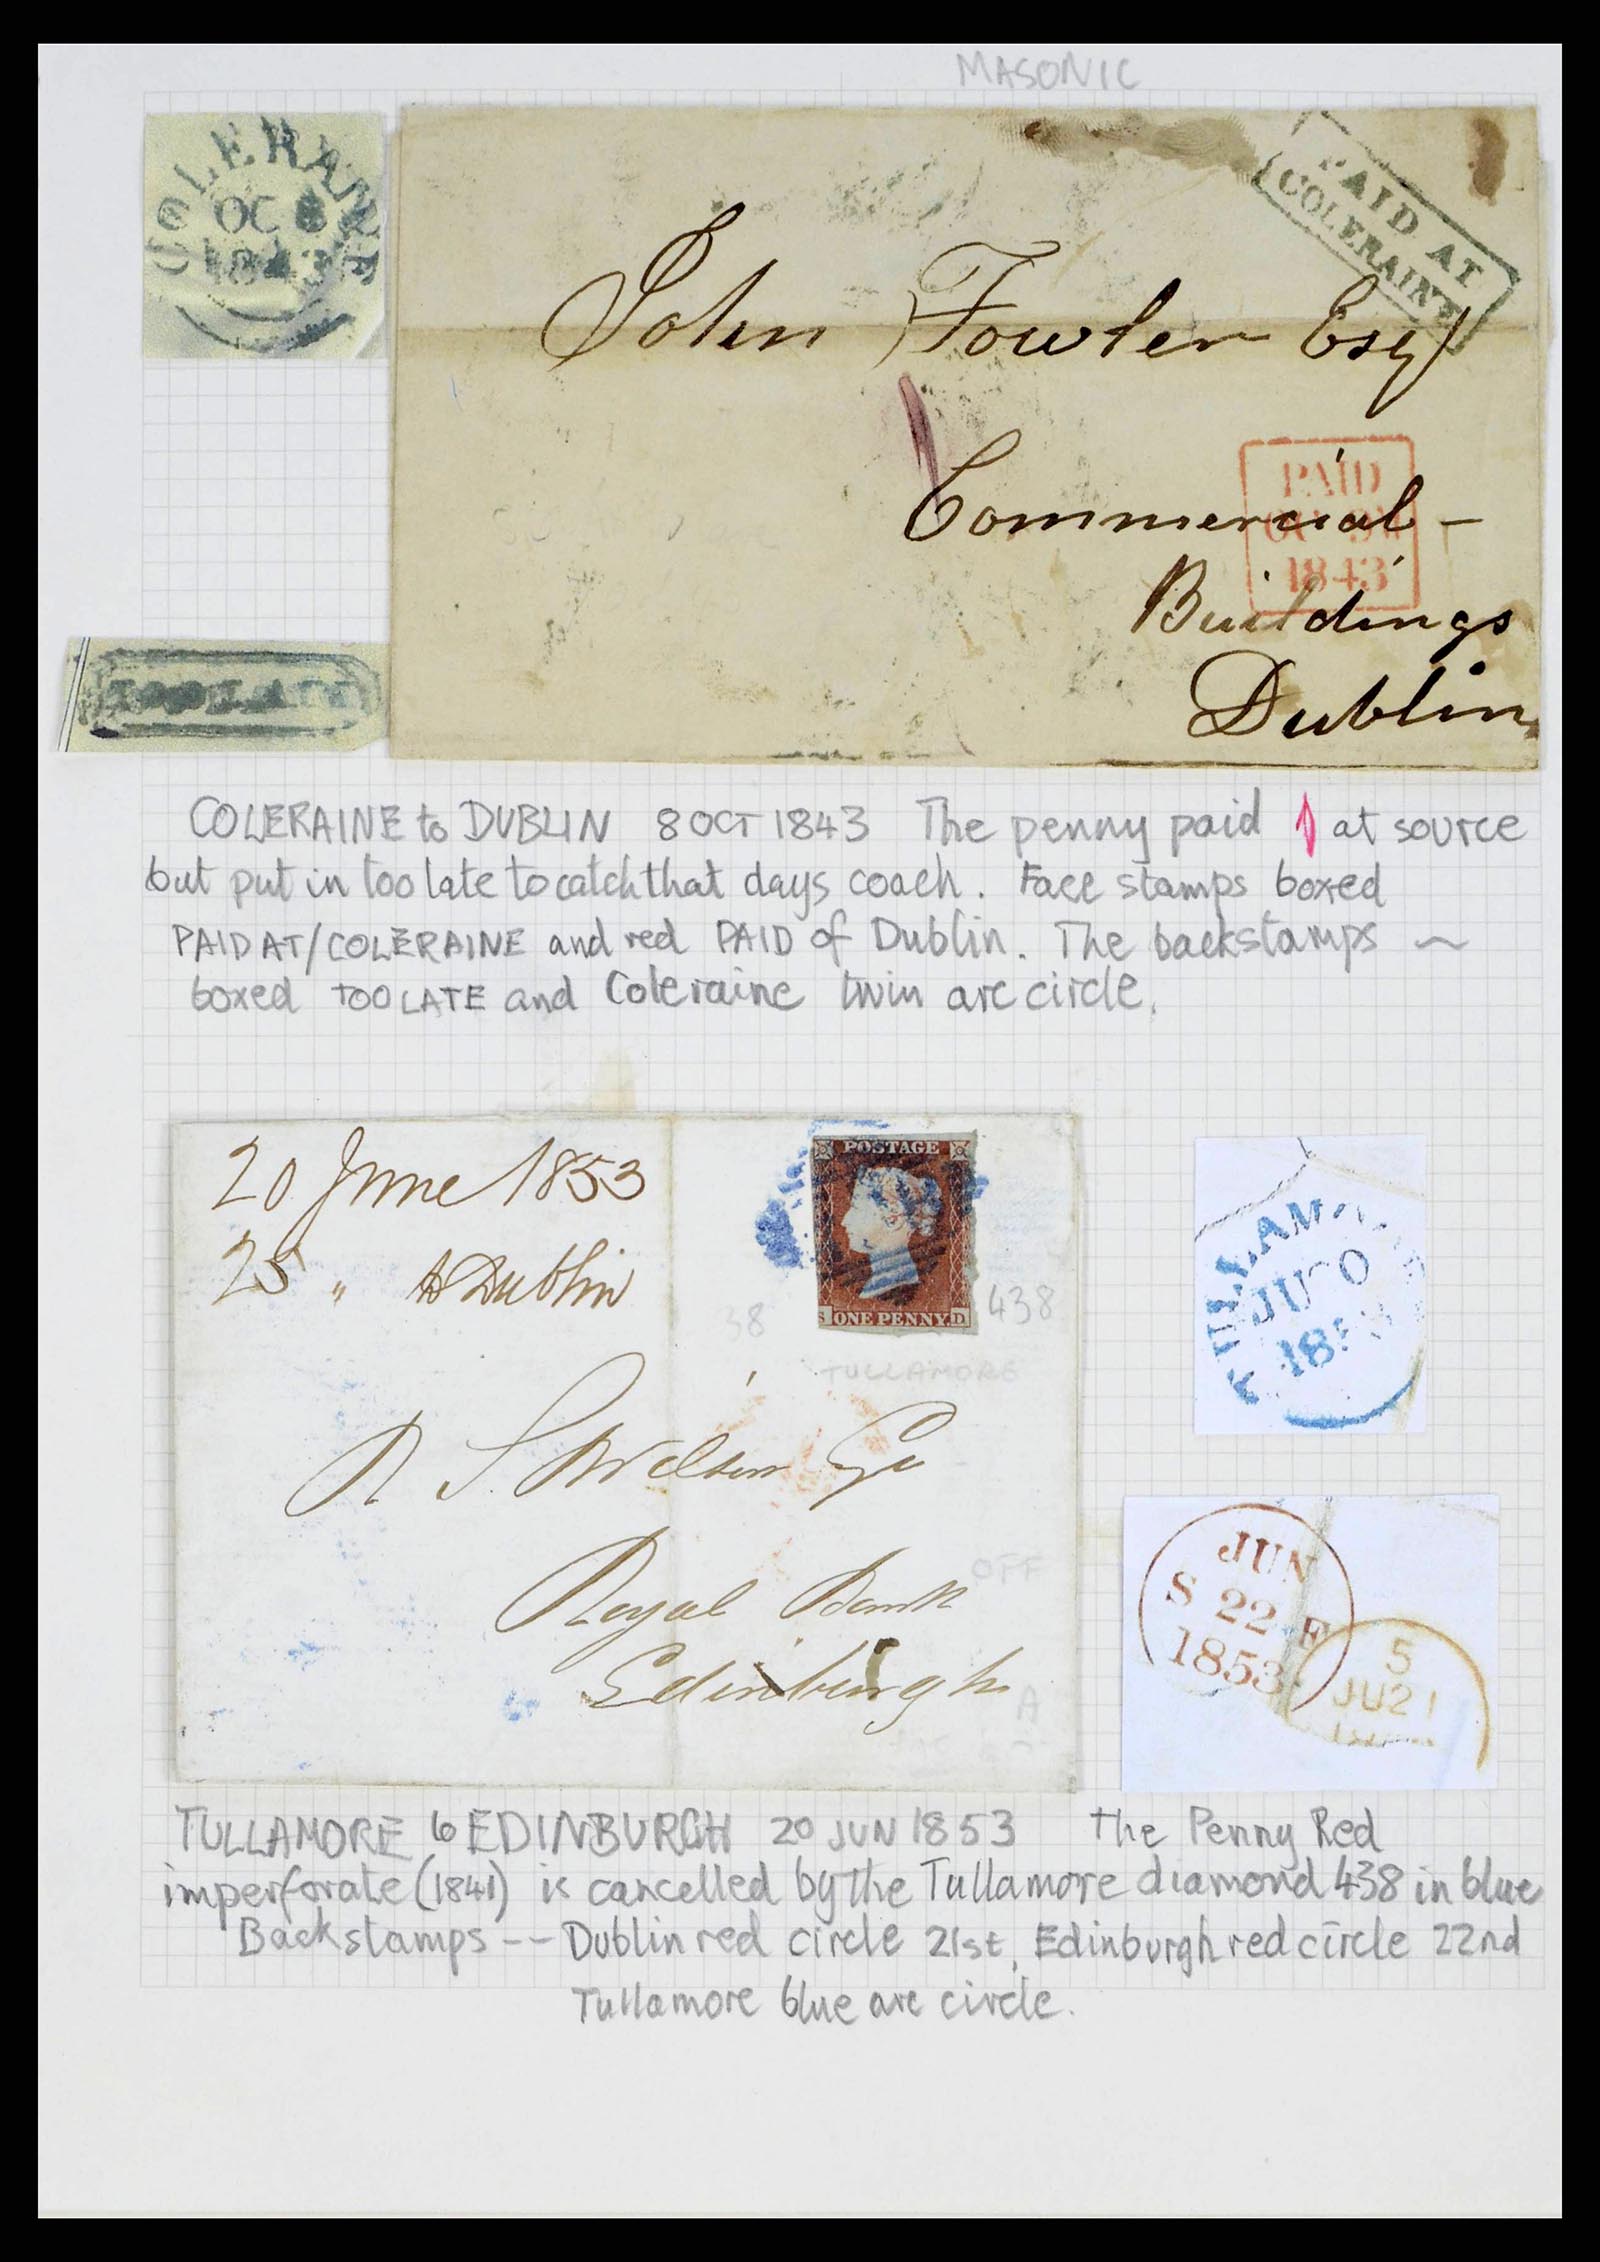 MASONIC
COLERAINE
OC 8
1843
PAID AT
COLERAINE
John Fowler Esq
1
PAID
1843
Commercial -
Buildings
Dublin
TOO LATE
COLERAINE to DUBLIN 8 OCT 1843 The penny paid 1 at source
but put in too late to catch that days coach. Face stamps boxed
PAID AT/COLERAINE and red PAID of Dublin. The backstamps ~
boxed TOO LATE and Coleraine twin arc circle.
20 June 1853
25 " Dublin
POSTAGE
S ONE PENNY D
38
438
TULLAMORE
R S Wilson
Royal Bank
Edinburgh
OFF
A
TULLAMORE
JU 0
185
JUN
S 22 E
1853
5
JU21
TULLAMORE to EDINBURGH 20 JUN 1853 The Penny Red
imperforate (1841) is cancelled by the Tullamore diamond 438 in blue
Backstamps -- Dublin red circle 21st, Edinburgh red circle 22nd
Tullamore blue arc circle.